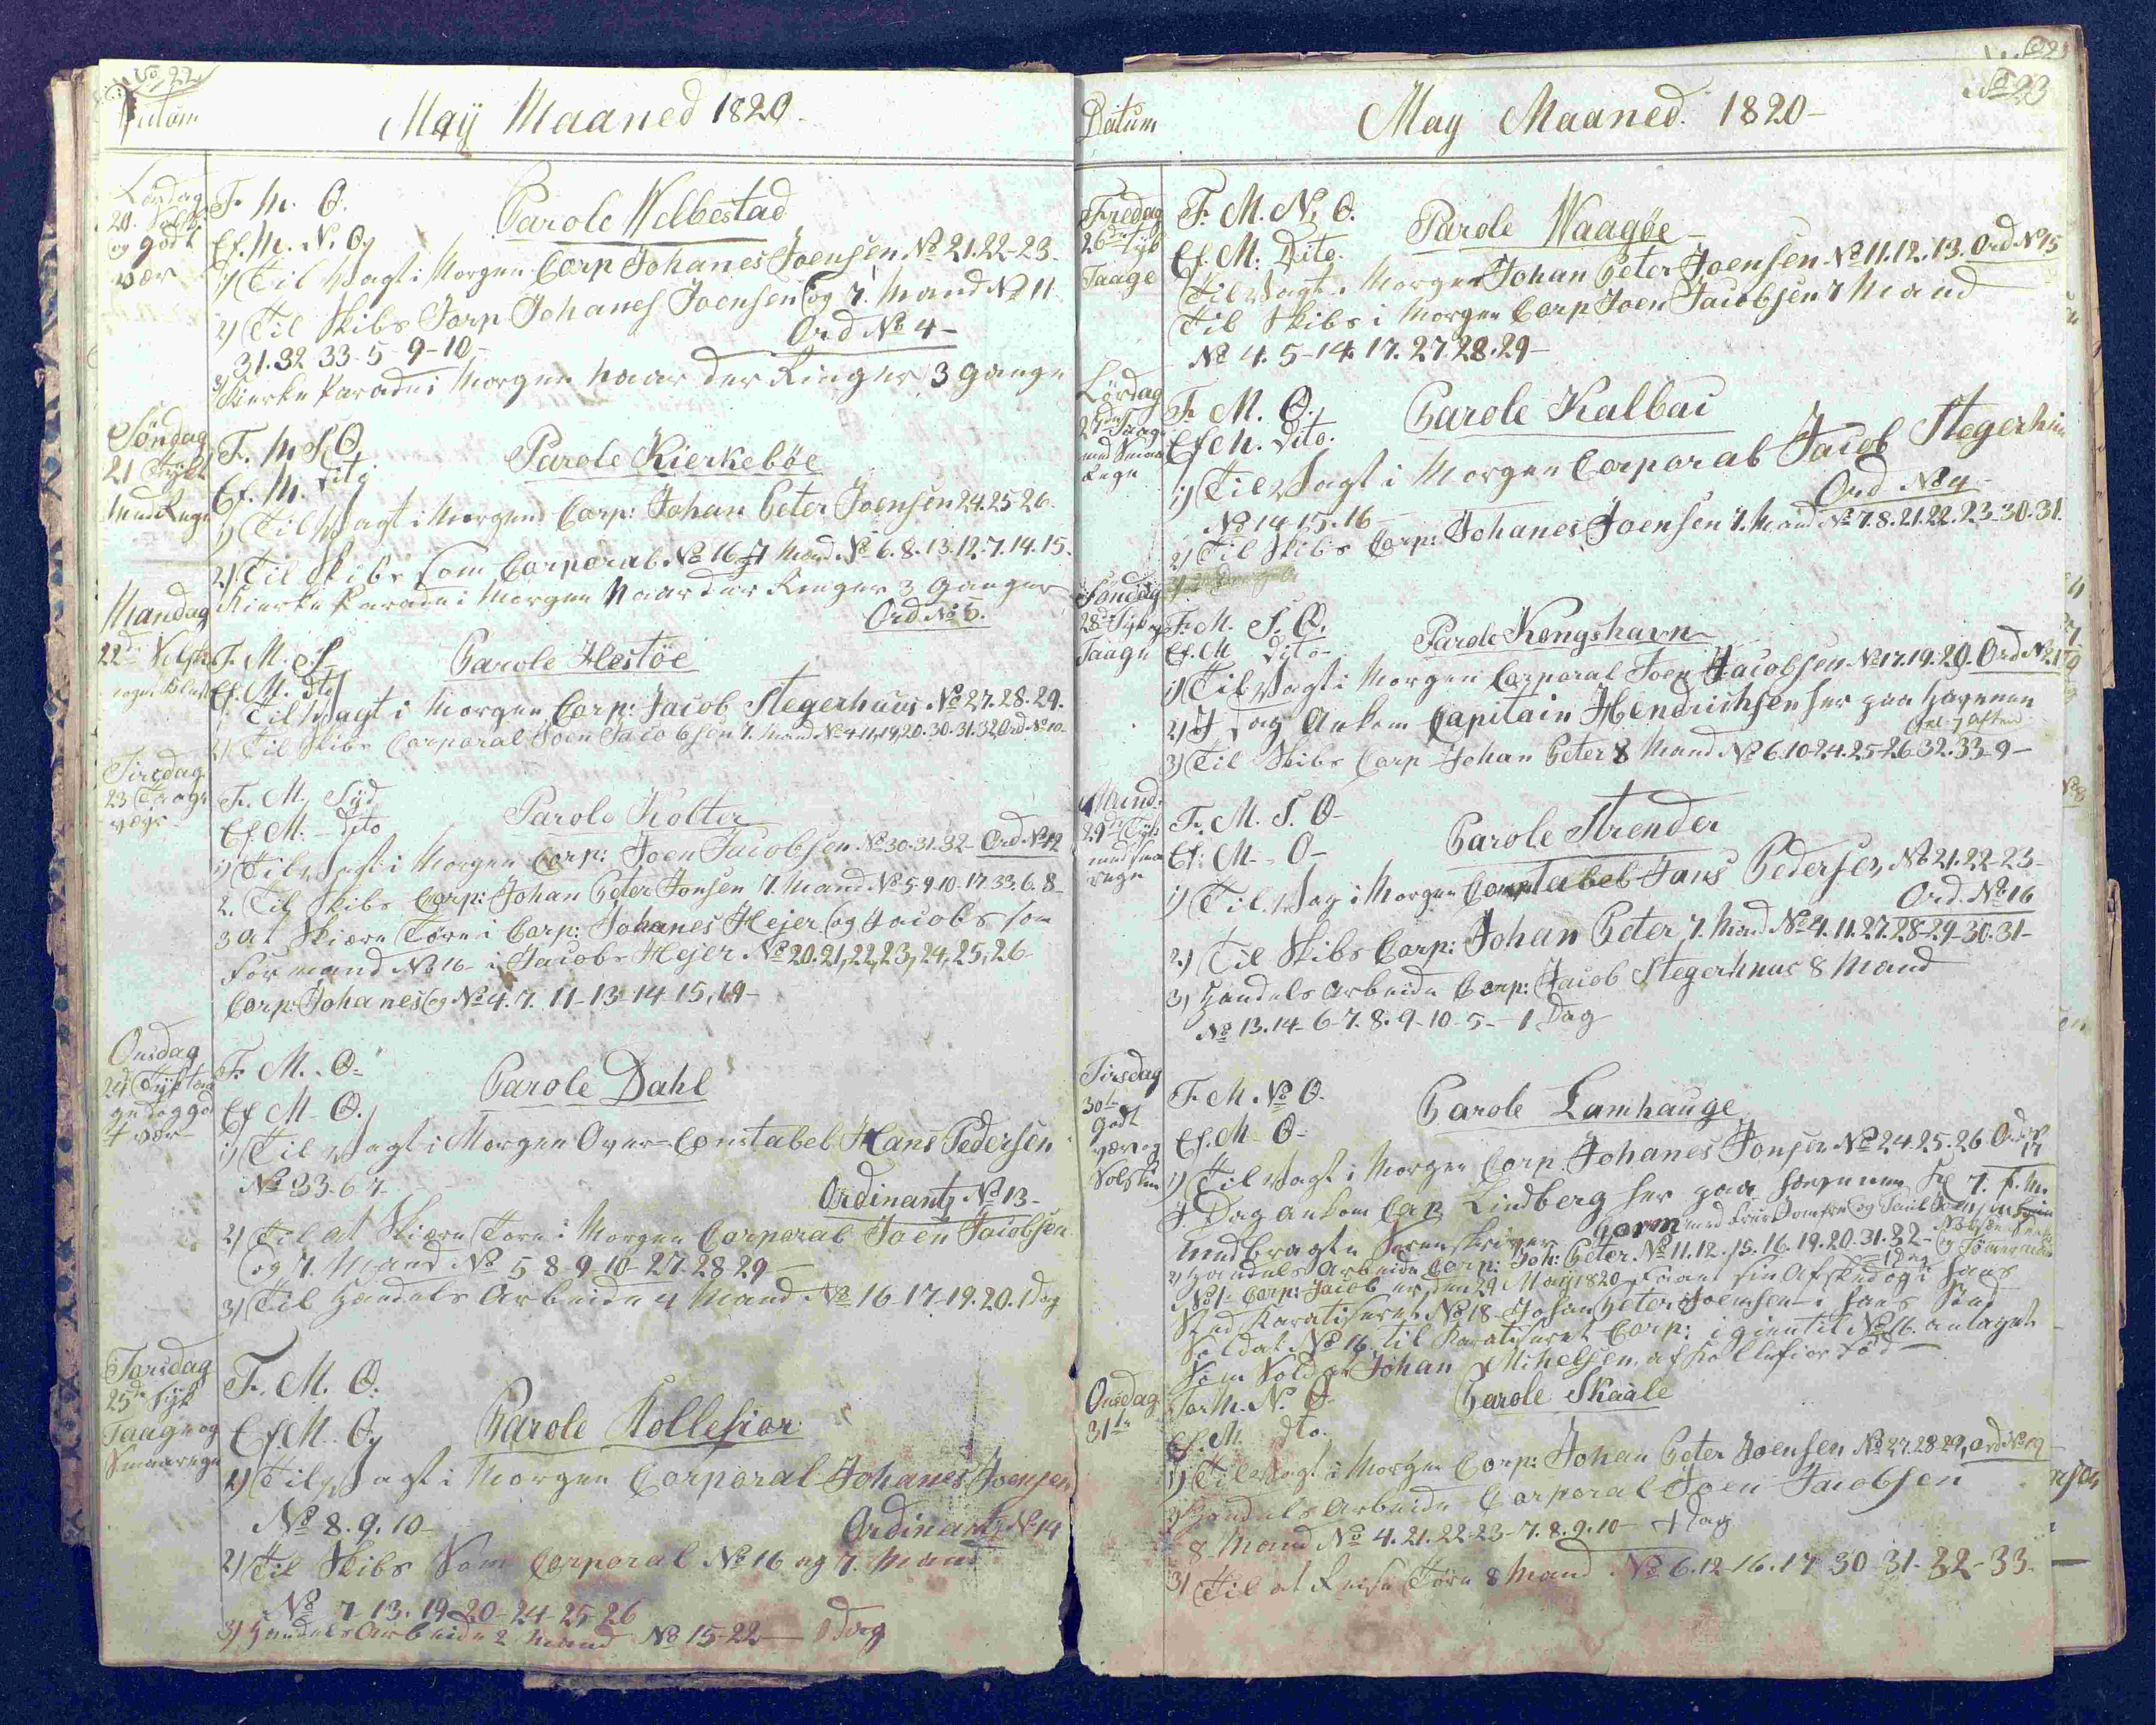 No 22
Datum
May Maaned 1820.
Lørdag
20. Solsk
og godt
vær
F. M. O.
Parole Welbestad
Ef. M. N. O.
1) Til Vagt i Morgen Corp Johanes Joensen No 21. 22-23-
2) Til Skibs Corp Johanes Joensen og 7. Mand No 11
31. 32 33-5-9-10-
Ord No 4-
3) Kierke Parade i Morgen naar der Ringes 3 Gange
Søndag
21 Tykt
F. M. S. O.
Parole Kierkebøe
Ef. M. Dito
1) Til Vagt i Morgen Corp: Johan Peter Joensen 24. 25-26.
2) Til Skibs som Corporal No 16 7 Mand No 6. 8. 13. 12. 7. 14. 15.
Kierke Parade i Morgen naar der Ringes 3 Ganger
Ord No 5.
Mandag
22de
F. M. S.
Parole Hestøe
Ef. M. dto
Til Vagt i Morgen Corp: Jacob Stegerhuus No 27. 28. 29.
2) Til Skibs Corporal Joen Jacobsen 7. Mand No 4-11, 19, 20. 30. 31. 32, Ord No 10-
Tirsdag
23 Taage
F. M. Syd
Parole Kolter
Ef. M. - Dito
1) Til Vagt i Morgen Corp: Joen Jacobsen No 30. 31. 32- Ord No 12
2. Til Skibs Corp: Johan Peter Jonsen 7. Mand No 5-9-10-17. 33. 6. 8-
3 At Skiære Tørv i Corp: Johanes Hejer og Jacobs som
Formand No 16- i Jacobs Hejer No 20. 21, 22, 23, 24, 25, 26-
Corp: Johanes og No 4. 7. 11-13-14 15, 19-
Onsdag
24 Tyk taa
ge dog god
t vær
F. M. O-
Parole Dahl
Ef M- O.
1) Til Vagt i Morgen Over-Constabel Hans Pedersen
No 33-6 7-
Ordinantz No 13-
2) Til at Skiære Tørv i Morgen Corporal Joen Jacobsen
og 7. Mand No 5 8-9-10-27 28 29-
3) Til Handels Arbeide 4 Mand No 16-17-19. 20. 1 Dag
Torsdag
25de Tyk
Taage og
Smaaregn
F. M. O.
Ef. M. O.
Parole Kollefior
1) Til Vagt i Morgen Corporal Johanes Joensen
No 8. 9. 10-
Ordinantz No 14
2) Til Skibs Som Corporal No 16 og 7. Mand
No 7-13. 19-20-24-25-26
3) Handels Arbeide 2 Mand No 15-22- 1 dag
No 23
Datum
May Maaned. 1820-
Fredag
26de Tyk
Taage
F. M. N. O.
Parole Waagøe-
Ef. M. Dito.
Til Vagt i Morgen Johan Peter Joensen No 11. 12. 13. Ord No 15
Til Skibs i Morgen Corp Joen Jacobsen 7 Mand
No 4. 5-14. 17. 27. 28. 29-
Lørdag
27de Taage
med Smaa
Regn
F. M. O.
Parole Kalbac
Ef M. Dito.
1) Til Vagt i Morgen Corporal Jacob Stegerhuus
No 14-15. 16-
2) Til Skibs Corp: Johanes Joensen 7. Mand No 7. 8. 21. 22. 23-30. 31.
Søndag
28de Tyk
Taage
F. M. S. O.
Parole Kongshavn
Ef. M Dito-
1) Til Vagt i Morgen Corporal Joen Jacobsen No 17. 19. 20.
2) I Dag Ankom Capitain Hendrichsen her paa Havnen
Kl 7 Aften
3) Til Skibs Corp Johan Peter 8 Mand No 6. 10-24. 25-26. 32. 33-9-
Mand.
29de Tyk
med smaa
regn
F. M. S. O-
Parole Strender
Ef: M- O-
1) Til Vagt i Morgen Constabel Hans Pedersen No 21. 22-23-
Ord. No 16
2) Til Skibs Corp: Johan Peter 7. Mand No 4. 11. 27. 28-29-30. 31-
3) Handels Arbeide Corp: Jacob Stegerhuus 8 Mand
No 13. 14-6-7. 8. 9-10-5- 1 Dag
Tirsdag
30te
godt
vær og
Solskin
F. M. N. O.
Parole Lamhauge
Ef. M- O-
1) Til Vagt i Morgen Corp. Johanes Jonsen No 24. 25. 26 Ord No 17
I Dag ankom Cap Lindberg her paa Havnen Kl 7. F. M.
medbragte Sorenskriver
2) Handels Arbeide Corp: Joh: Peter No 11. 12. 15. 16. 19. 20. 31. 32-
No 1- Corp: Jacob er den 29 May 1820 Faaet sin Afsked og i hans
Sted No 18 Johan Peter Joensen i hans Sted
Soldat No 16 til Corp: igien til No 16. antaget
Som Soldat Johan Mihelsen af Kollefior
Onsdag
31te
For M. N. O-
Parole Skaale
Ef. M dto.
1) Til Vagt i Morgen Corp: Johan Peter Joensen No 27. 28-29, ord No 19
2) Handels Arbeide Corporal Joen Jacobsen
8 Mand No 4. 21. 22-23-7. 8. 9. 10- 1 Dag
3) Til at Reise Tørv 8 Mand No 6. 12-16. 17-30-31-32-33-